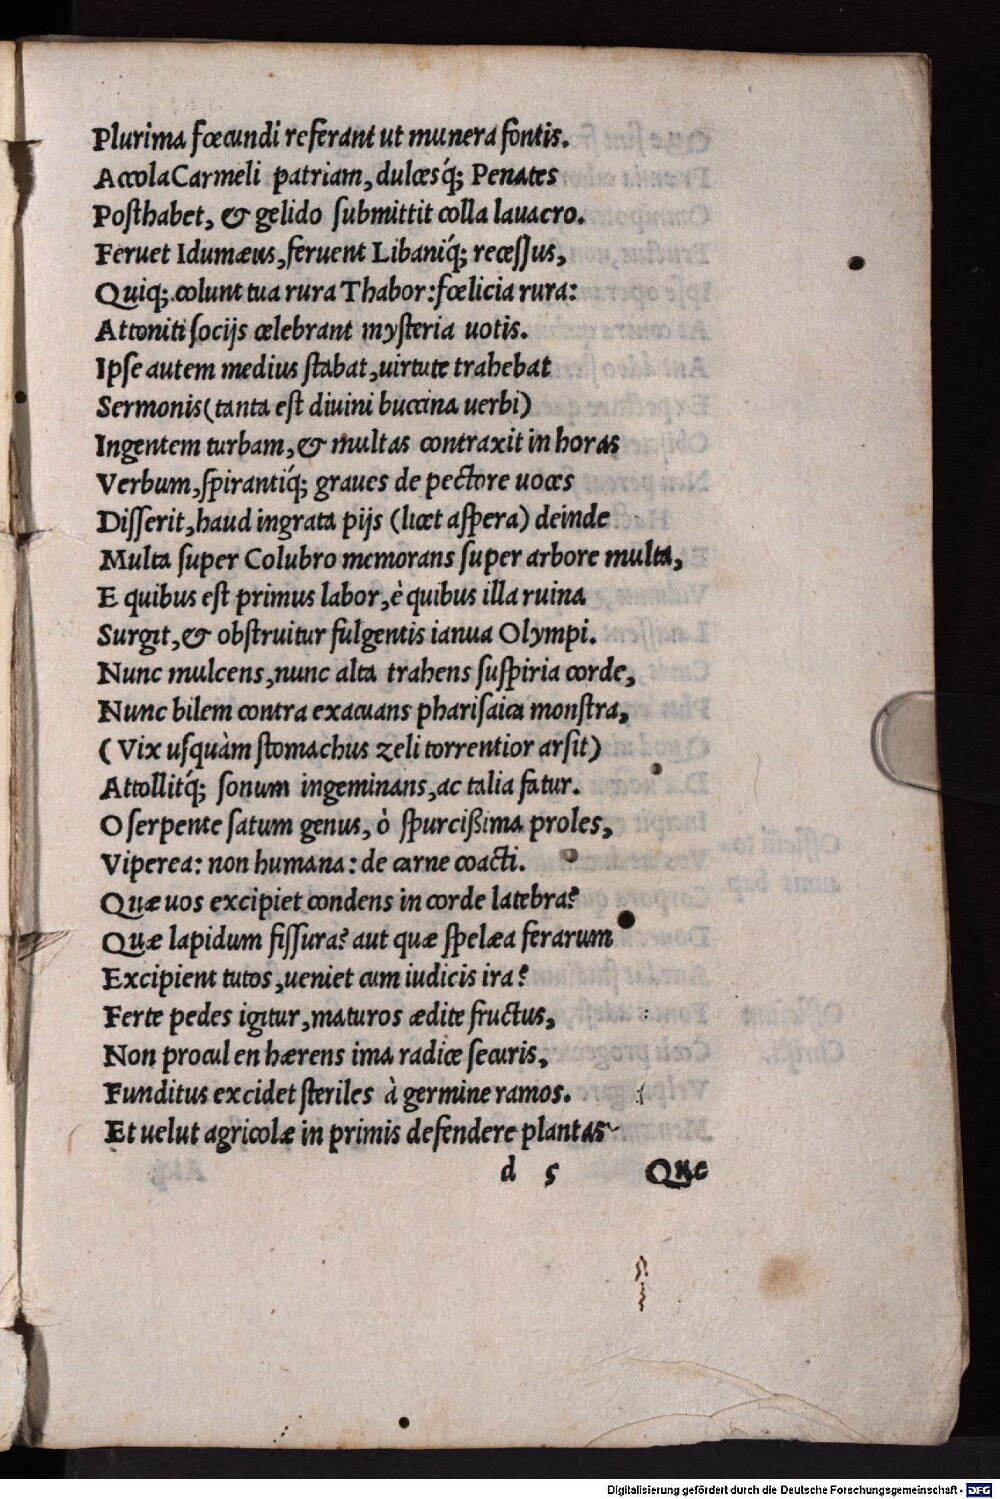 Plurima fœcundi referant ut munera fontis.
Accola Carmeli patriam, dulcesq́; Penates
Posthabet, & gelido submittit colla lauacro.
Feruet Idumæus, feruent Libaniq́; recessus,
Quiq;. colunt tua rura Thabor: fœlicia rura:
Attoniti socijs celebrant mysteria uotis.
Ipse autem medius stabat, uirtute trahebat
Sermonis (tanta est diuini buccina uerbi)
Ingentem turbam, & multas contraxit in horas
Verbum, spirantiq́; graues de pectore uoces
Disserit, haud ingrata pijs (licet aspera) deinde
Multa super Colubro memorans super arbore multa,
E quibus est primus labor, è quibus illa ruina
Surgit, & obstruitur fulgentis ianua Olympi.
Nunc mulcens, nunc alta trahens suspiria corde,
Nunc bilem contra exacuans pharisaica monstra,
( Vix usquàm stomachus zeli torrentior arsit)
Attollitq́; sonum ingeminans, ac talia fatur.
O serpente satum genus, ò spurcißima proles,
Viperea: non humana: de carne coacti.
Quæ uos excipiet condens in corde latebra?
Quæ lapidum fissura? aut quæ spelæa ferarum
Excipient tutos, ueniet cum iudicis ira?
Ferte pedes igitur, maturos ædite fructus,
Non procul en hærens ima radice securis,
Funditus excidet steriles à germine ramos.
Et uelut agricolæ in primis defendere plantas
d 5 Quę
Digitalisierung gefördert durch die Deutsche Forschungsgemeinschaft - DFG